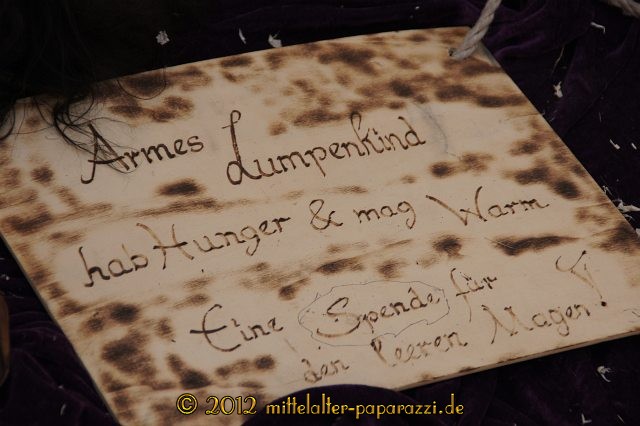 Armes Lumpenkind
hab Hunger & mag Warm
Eine Spende für
den leeren Magen!
© 2012 mittelalter-paparazzi.de